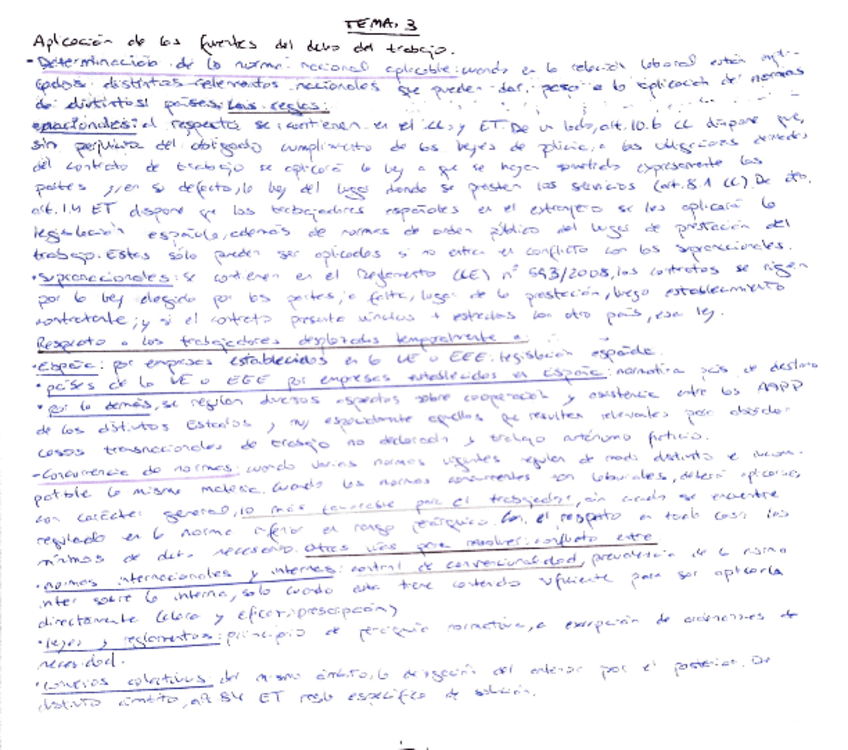 TEMA. 3
Aplicación de las fuentes del dcho del trabajo.
- Determinación de la norma nacional aplicable: cuando en la relación laboral están impli-
cados distintos elementos nacionales que pueden dar paso a la aplicación de normas
de distintos países. Las reglas:
nacionales: al respecto se contienen en el CC y ET. De un lado, art. 10.6 CC dispone que,
sin perjuicio del obligado cumplimiento de las leyes de policía, a las obligaciones derivadas
del contrato de trabajo se aplicará la ley a que se hayan sometido expresamente las
partes y, en su defecto, la ley del lugar donde se presten los servicios (art. 8.1 CC). De otro,
art. 1.4 ET dispone que los trabajadores españoles en el extranjero se les aplicará la
legislación española, además de normas de orden público del lugar de prestación del
trabajo. Estas sólo pueden ser aplicadas si no entran en conflicto con las supranacionales.
· Supranacionales: se contienen en el Reglamento (CE) nº 593/2008, los contratos se rigen
por la ley elegida por las partes, a falta, lugar de la prestación, luego establecimiento
contratante; y si el contrato presenta vínculos + estrechos con otro país, esa ley.
Respecto a los trabajadores desplazados temporalmente a:
· España: por empresas establecidas en la UE o EEE. legislación española.
· países de la UE o EEE por empresas establecidas en España: normativa país de destino
· por lo demás, se regulan diversos aspectos sobre cooperación y asistencia entre las AAPP
de los distintos Estados y muy especialmente aquellos que resulten relevantes para abordar
casos transnacionales de trabajo no declarado y trabajo autónomo ficticio.
- Concurrencia de normas: cuando varias normas vigentes regulan de modo distinto e incom-
patible la misma materia. Cuando las normas concurrentes son laborales, deberá aplicarse,
con carácter general, la más favorable para el trabajador, aún cuando se encuentre
regulado en la norma inferior en rango jerárquico. Con el respeto en todo caso los
mínimos de dcho necesario. Otras vías para resolver: conflicto entre
· normas internacionales y internas: control de convencionalidad, prevalencia de la norma
inter sobre la interna, solo cuando esta tiene contenido suficiente para ser aplicada
directamente (clara y eficaz prescripción)
· leyes y reglamentos: principio de jerarquía normativa, a excepción de ordenaciones de
necesidad.
· Convenios colectivos del mismo ámbito, la derogación del anterior por el posterior. De
distinto ámbito, art 84 ET regla específica de solución.